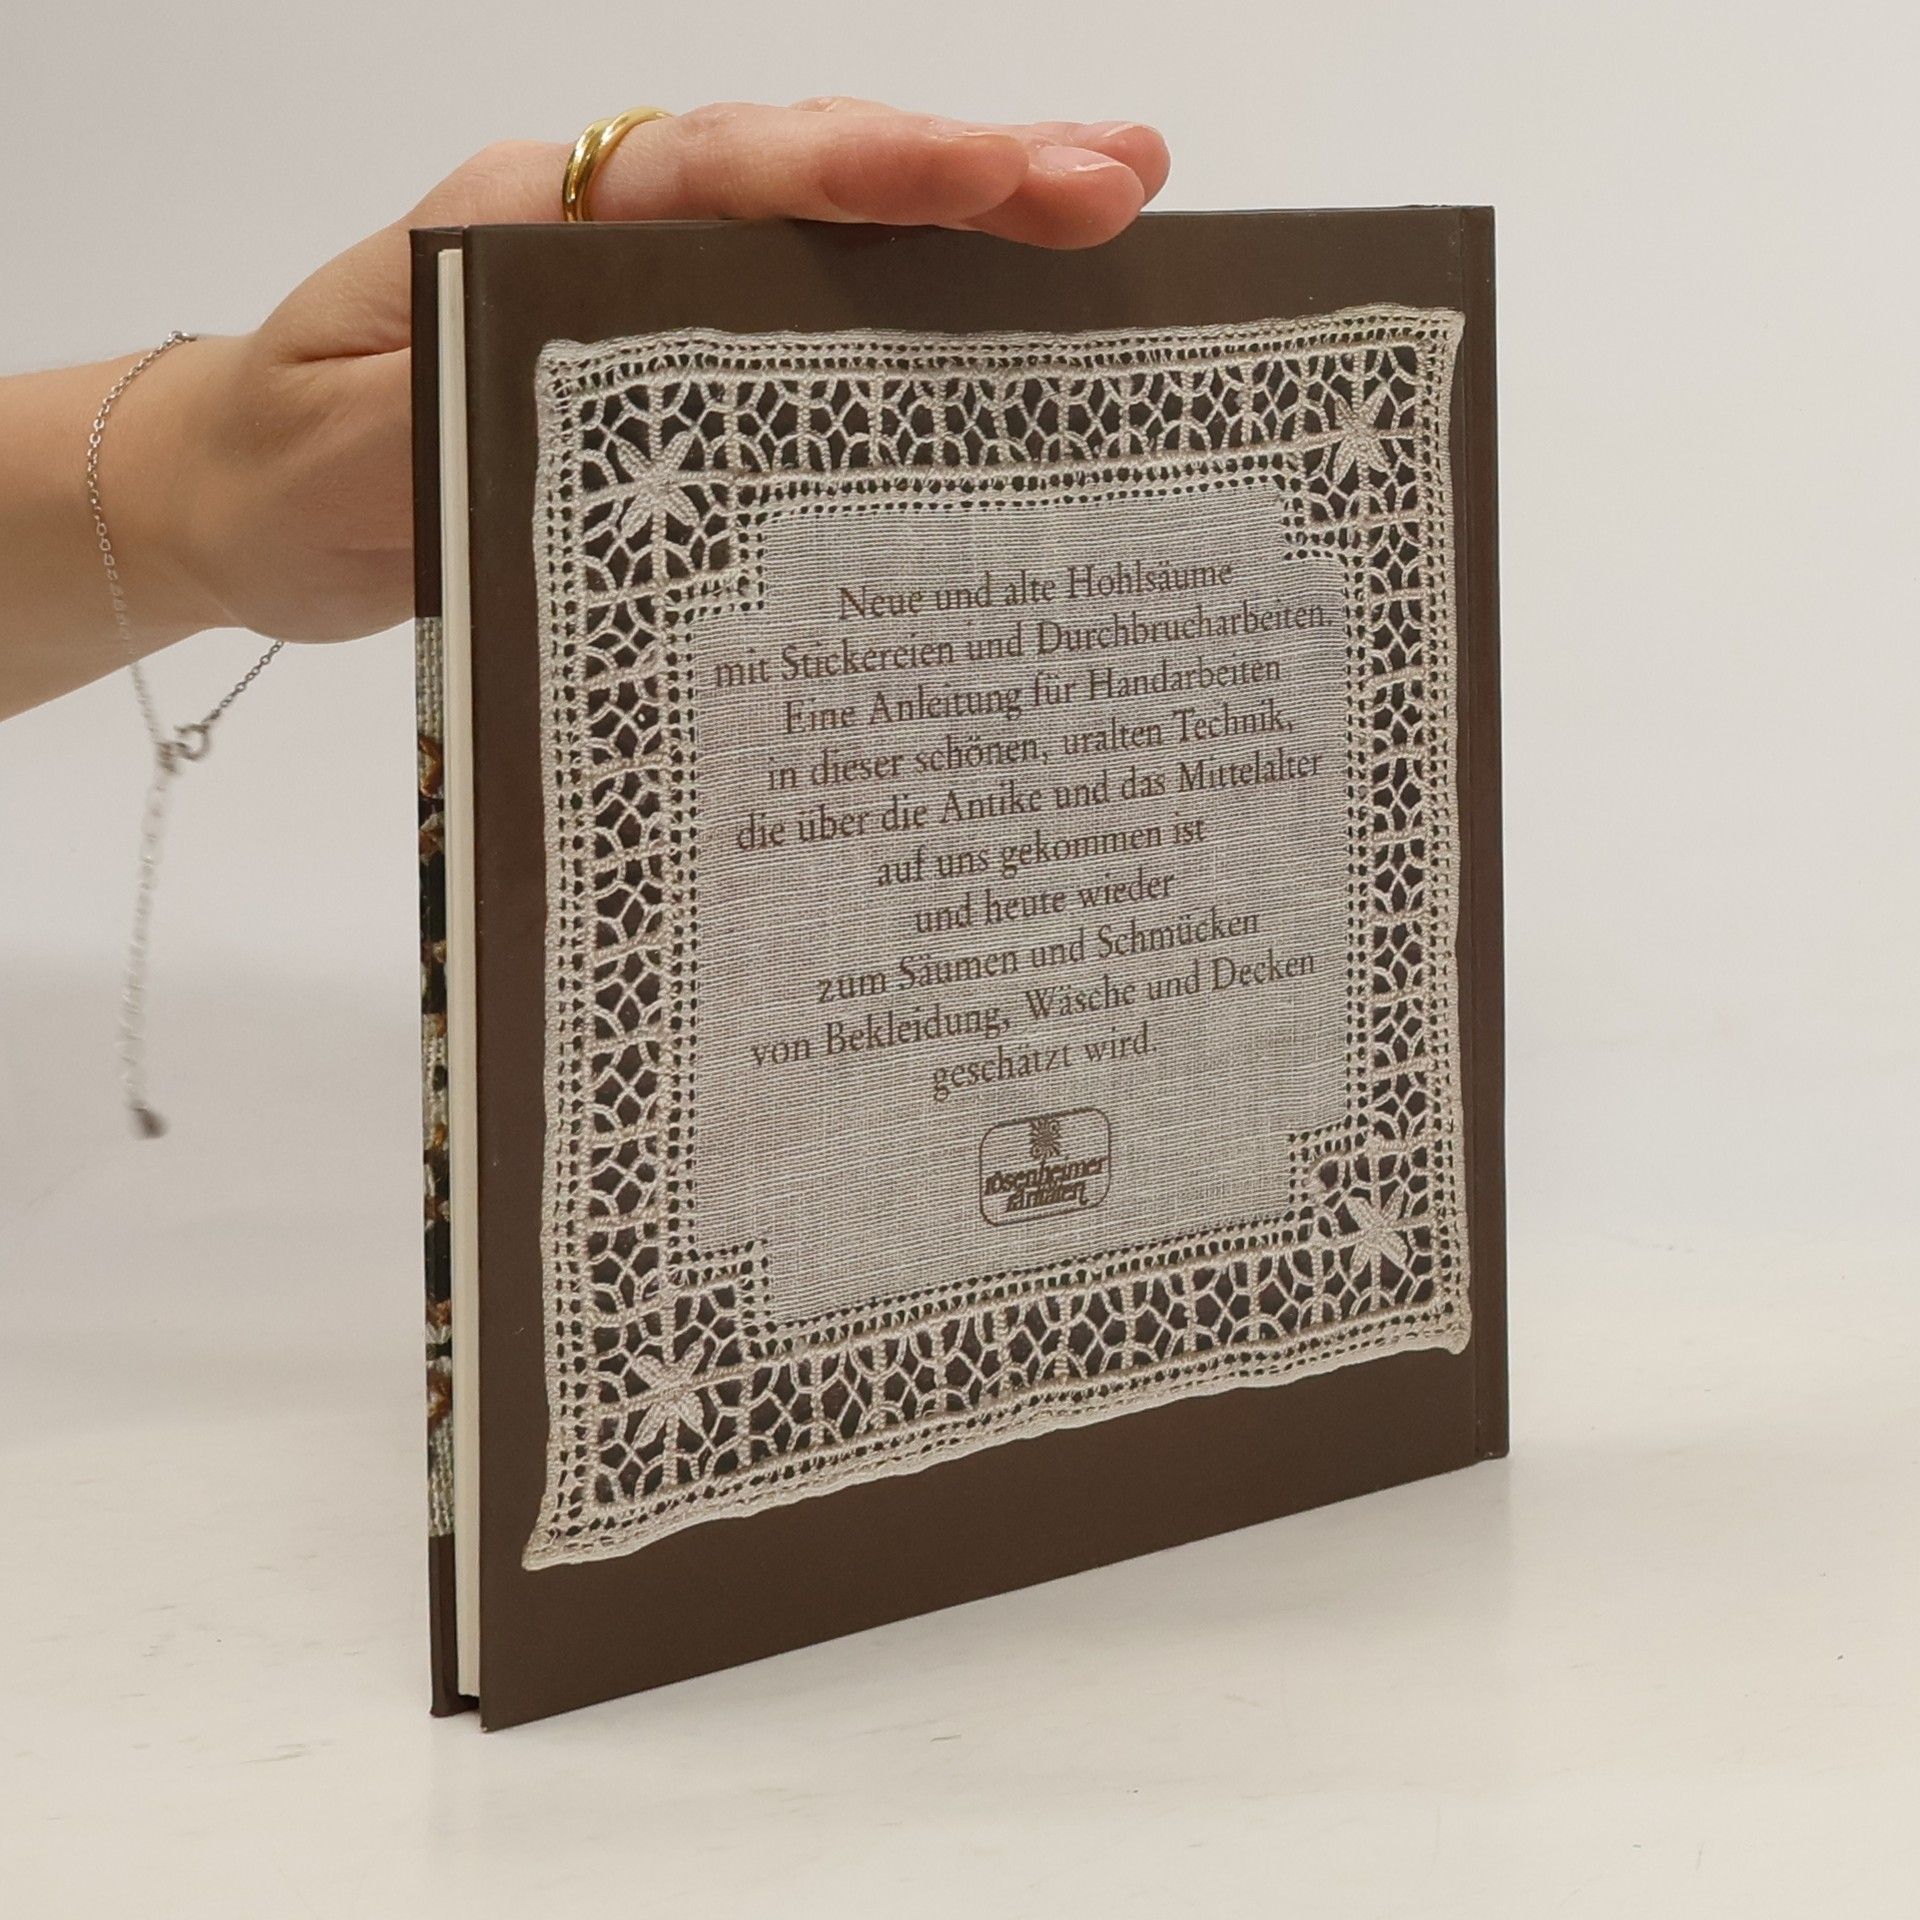 Neue und alte Hohlsäume
mit Stickereien und Durchbrucharbeiten.
Eine Anleitung für Handarbeiten
in dieser schönen, uralten Technik,
die über die Antike und das Mittelalter
auf uns gekommen ist
und heute wieder
zum Säumen und Schmücken
von Bekleidung, Wäsche und Decken
geschätzt wird.
rosenheimer
raritäten